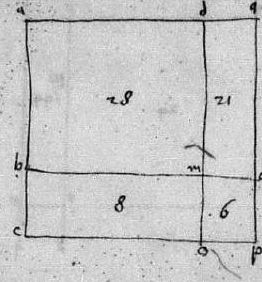 a d q
28 21
b m
8 6
c o p